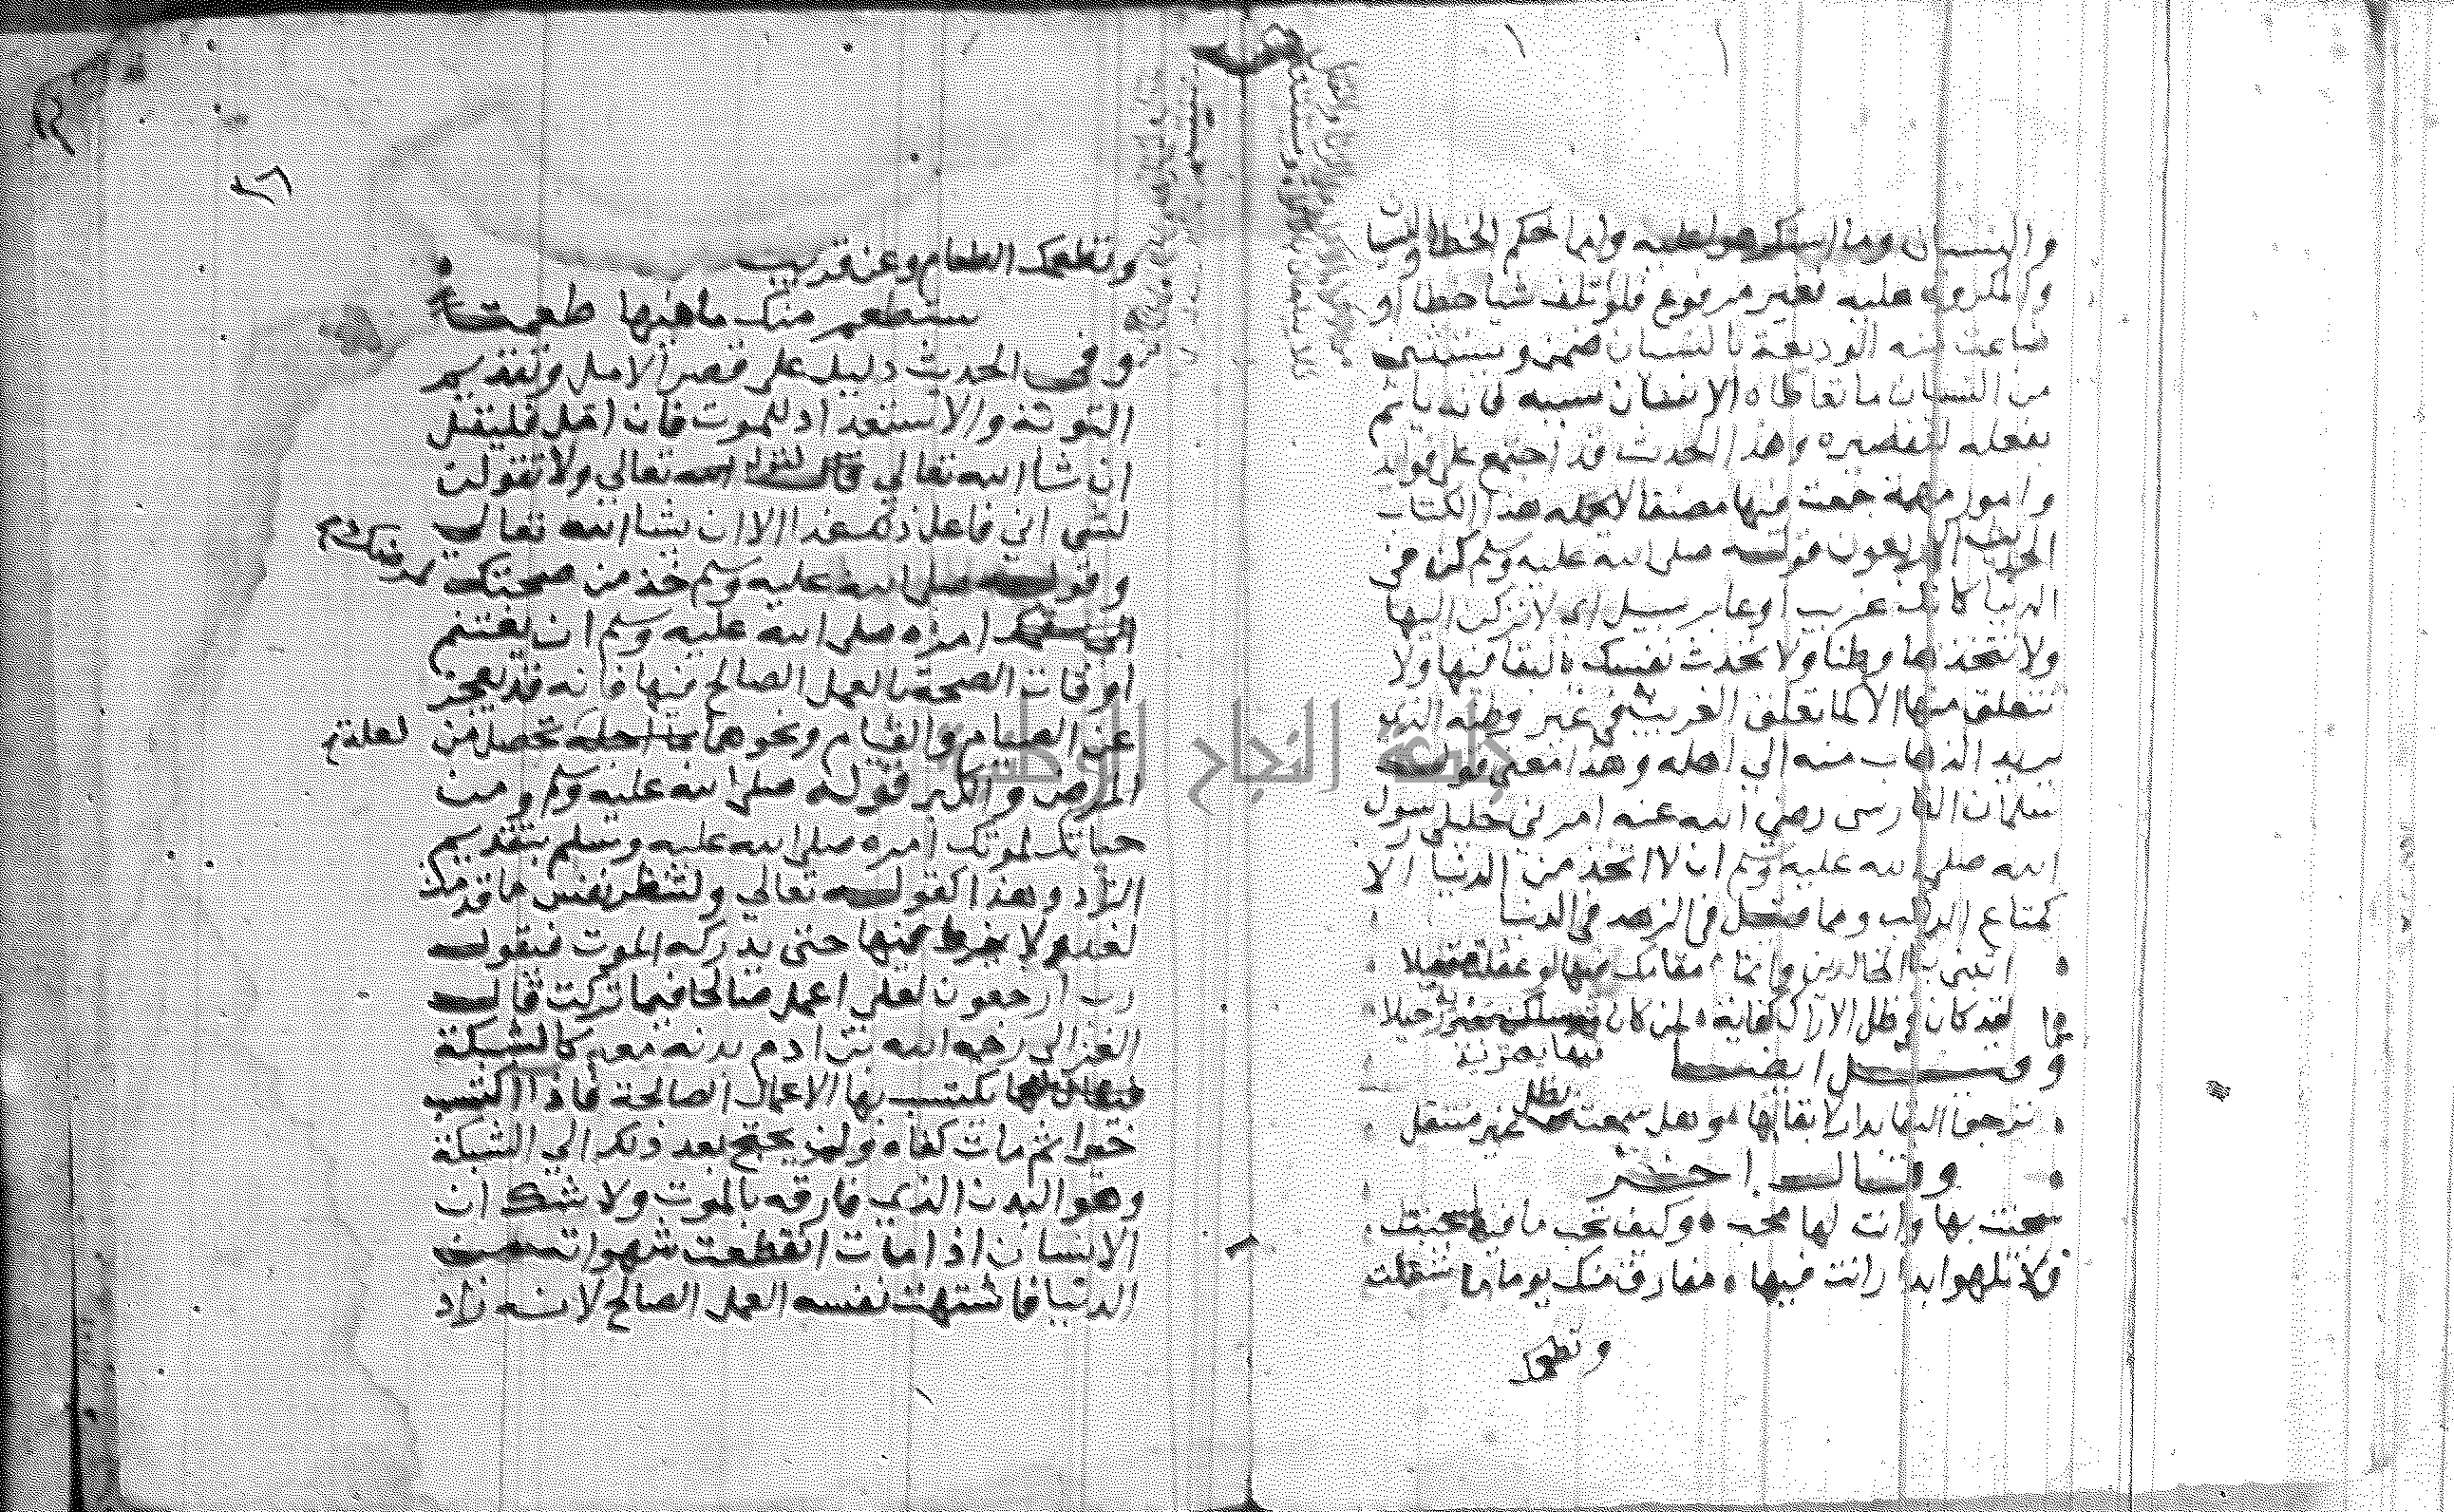 والنسيان وما استكرهوا عليه واما حكم الخطا والنسيان
والمكروه عليه فغير مرفوع فلو اتلف شيا خطا او
ضاعت منه الوديعة بالنسيان ضمن ويستثنى
من النسيان ما تعاطاه الانسان بسببه فانه ياثم
بفعله لتقصيره وهذا الحدث قد اجتمع على فوايد
وامور مهمة جمعت فيها مصنفا لا يحتمله هذا الكتاب
الحديث الاربعون قوله صلى الله عليه وسلم كن في
الدنيا كانك غريب او عابر سبيل اى لا تركن اليها
ولا تتخذها وطنا ولا تحدث نفسك بالبقا فيها ولا
تتعلق منها الا كما يتعلق الغريب في غير وطنه الذي
يريد الذهاب منه الي اهله وهذا معني قول
سلمان الفارسى رضي الله عنه امرني خليلي رسول
الله صلى الله عليه وسلم ان لا اتخذ من الدنيا الا
كمتاع الراكب ومما قيل في الزهد في الدنيا
اتبني بنا الخالدين وانما مقامك فيها لو عقلت قليلا
لقد كان في ظل الاراك كفاية لمن كان فيها يعتريه رحيلا
وقيل ايضا
ترجو البقا بدار لا بقا لها وهل سمعت بظل غير منتقل
وقال اخر
سجنت بها وانت لها محب وكيف تحب ما فيه سجنت
فلا تلهو بدار انت فيها مفارق منك يوما ما شتقلت
وتطعمك
٢٦
وتطعمك الطعام وعن قريب
ستطعم منك ما فيها طعمت
وفي الحدث دليل علي قصر الامل وتقديم
التوبة والاستعداد للموت فان امل فليقل
ان شا الله تعالي قال الله تعالي ولا تقولن
لشي اني فاعل ذلك غدا الا ان يشا الله تعالي
وقوله صلى الله عليه وسلم خذ من صحتك
امره صلى الله عليه وسلم ان يغتنم
اوقات الصحة بالعمل الصالح فيها فانه قد يعجز
عن الصيام والقيام ونحوهما لعلة تحصل من
المرض والكبر قوله صلى الله عليه وسلم ومن
حياتك لموتك امره صلى الله عليه وسلم بتقديم
الزاد وهذا كقوله تعالي ولتنظر نفس ما قدمت
لغد ولا يفرط فيها حتى يدركه الموت فيقول
رب ارجعون لعلي اعمل صالحا فيما تركت قال
الغزالي رحمه الله بن ادم بدنه معه كالشبكة
يكتسب بها الاعمال الصالحة فاذا اكتسب
خيرا ثم مات كفاه ولم يحتج بعد ذلك الي الشبكة
وهو البدن الذي فارقه بالموت ولا شك ان
الانسان اذا مات انقطعت شهواته من
الدنيا فاشتهت نفسه العمل الصالح لانه زاد